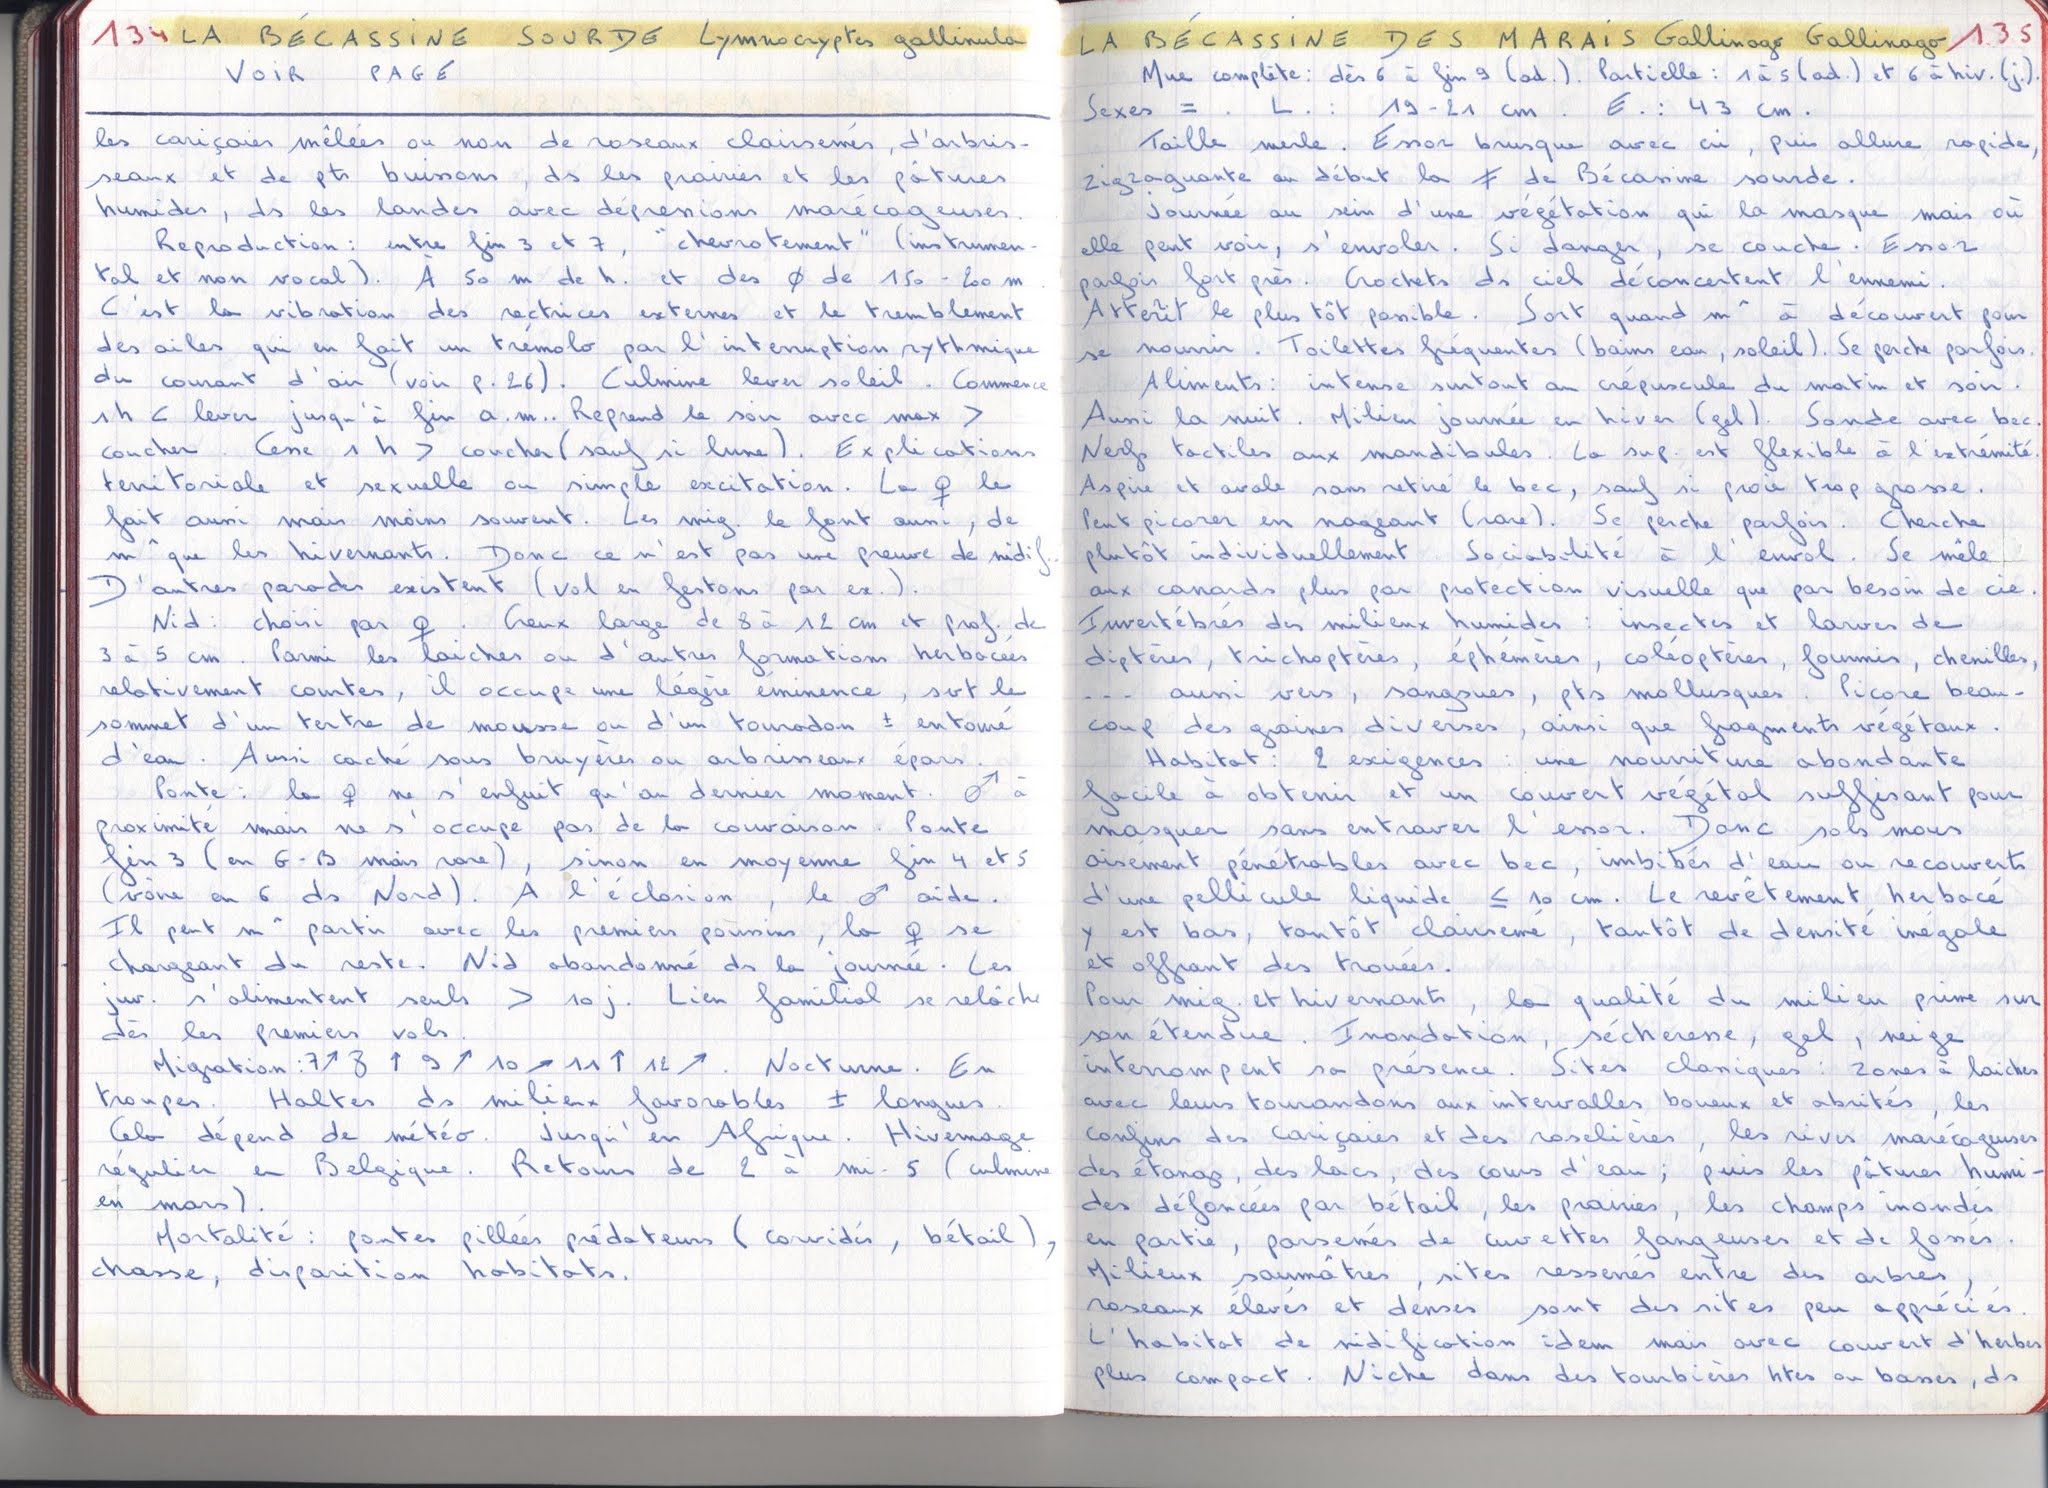 134 LA BÉCASSINE SOURDE Lymnocryptes gallinula
VOIR PAGE
les cariçaies mêlées ou non de roseaux clairsemés, d'arbris-
seaux et de pts buissons, ds les prairies et les pâtures
humides, ds les landes avec dépressions marécageuses.
Reproduction : entre fin 3 et 7, "chevrotement" (instrumen-
tal et non vocal). À 50 m de h. et des ø de 150-200 m.
C'est la vibration des rectrices externes et le tremblement
des ailes qui en fait un trémolo par l'interruption rythmique
du courant d'air (voir p. 26). Culmine lever soleil. Commence
1h < lever jusqu'à fin a.m.. Reprend le soir avec max >
coucher. Cesse 1 h > coucher (sauf si lune). Explications
territoriale et sexuelle ou simple excitation. La ♀ le
fait aussi mais moins souvent. Les mig. le font aussi, de
m^ que les hivernants. Donc ce n'est pas une preuve de nidif..
D'autres parades existent (vol en festons par ex.).
Nid : choisi par ♀. Creux large de 8 à 12 cm et prof. de
3 à 5 cm. Parmi les laiches ou d'autres formations herbacées
relativement courtes, il occupe une légère éminence, svt le
sommet d'un tertre de mousse ou d'un touradon ± entouré
d'eau. Aussi caché sous bruyères ou arbrisseaux épars.
Ponte : la ♀ ne s'enfuit qu'au dernier moment. ♂ à
proximité mais ne s'occupe pas de la couvaison. Ponte
fin 3 (en G-B mais rare), sinon en moyenne fin 4 et 5
(voire en 6 ds Nord). A l'éclosion, le ♂ aide.
Il peut m^ partir avec les premiers poussins, la ♀ se
chargeant du reste. Nid abandonné ds la journée. Les
juv. s'alimentent seuls > 10 j. Lien familial se relâche
dès les premiers vols.
Migration : 7↗ 8 ↑ 9 ↗ 10 → 11 ↑ 12 ↗. Nocturne. En
troupes. Haltes ds milieux favorables ± longues.
Cela dépend de météo. Jusqu'en Afrique. Hivernage
régulier en Belgique. Retours de 2 à mi-5 (culmine
en mars).
Mortalité : pontes pillées prédateurs (corvidés, bétail),
chasse, disparition habitats.
LA BÉCASSINE DES MARAIS Gallinago Gallinago 135
Mue complète : dès 6 à fin 9 (ad.). Partielle : 1 à 5 (ad.) et 6 à hiv. (j.).
Sexes = . L. : 19-21 cm. E. : 43 cm.
Taille merle. Essor brusque avec cri, puis allure rapide,
zigzaguante au début la ≠ de Bécassine sourde.
Journée au sein d'une végétation qui la masque mais où
elle peut voir, s'envoler. Si danger, se couche. Essor
parfois fort près. Crochets ds ciel déconcertent l'ennemi.
Atterît le plus tôt possible. Sort quand m^ à découvert pour
se nourrir. Toilettes fréquentes (bains eau, soleil). Se perche parfois.
Aliments : intense surtout au crépuscule du matin et soir.
Aussi la nuit. Milieu journée en hiver (gel). Sonde avec bec.
Nerfs tactiles aux mandibules. La sup. est flexible à l'extrémité.
Aspire et avale sans retiré le bec, sauf si proie trop grosse.
Peut picorer en nageant (rare). Se perche parfois. Cherche
plutôt individuellement Sociabilité à l'envol. Se mêle
aux canards plus par protection visuelle que par besoin de cie.
Invertébrés des milieux humides : insectes et larves de
diptères, trichoptères, éphémères, coléoptères, fourmis, chenilles,
... aussi vers, sangsues, pts mollusques. Picore beau-
coup des graines diverses, ainsi que fragments végétaux.
Habitat : 2 exigences : une nourriture abondante
facile à obtenir et un couvert végétal suffisant pour
masquer sans entraver l'essor. Donc sols mous
aisément pénétrables avec bec, imbibés d'eau ou recouverts
d'une pellicule liquide ≤ 10 cm. Le revêtement herbacé
y est bas, tantôt clairsemé, tantôt de densité inégale
et offrant des trouées.
Pour mig. et hivernants, la qualité du milieu prime sur
son étendue. Inondation, sécheresse, gel, neige
interrompent sa présence. Sites classiques : zones à laiches
avec leurs tourandons aux intervalles boueux et abrités, les
confins des cariçaies et des roselières, les rives marécageuses
des étangs, des lacs, des cours d'eau ; puis les pâtures humi-
des défoncées par bétail, les prairies, les champs inondés
en partie, parsemés de cuvettes fangeuses et de fossés.
Milieux saumâtres, sites resserrés entre des arbres,
roseaux élevés et denses sont des sites peu appréciés.
L'habitat de nidification idem mais avec couvert d'herbes
plus compact. Niche dans des tourbières htes ou basses, ds